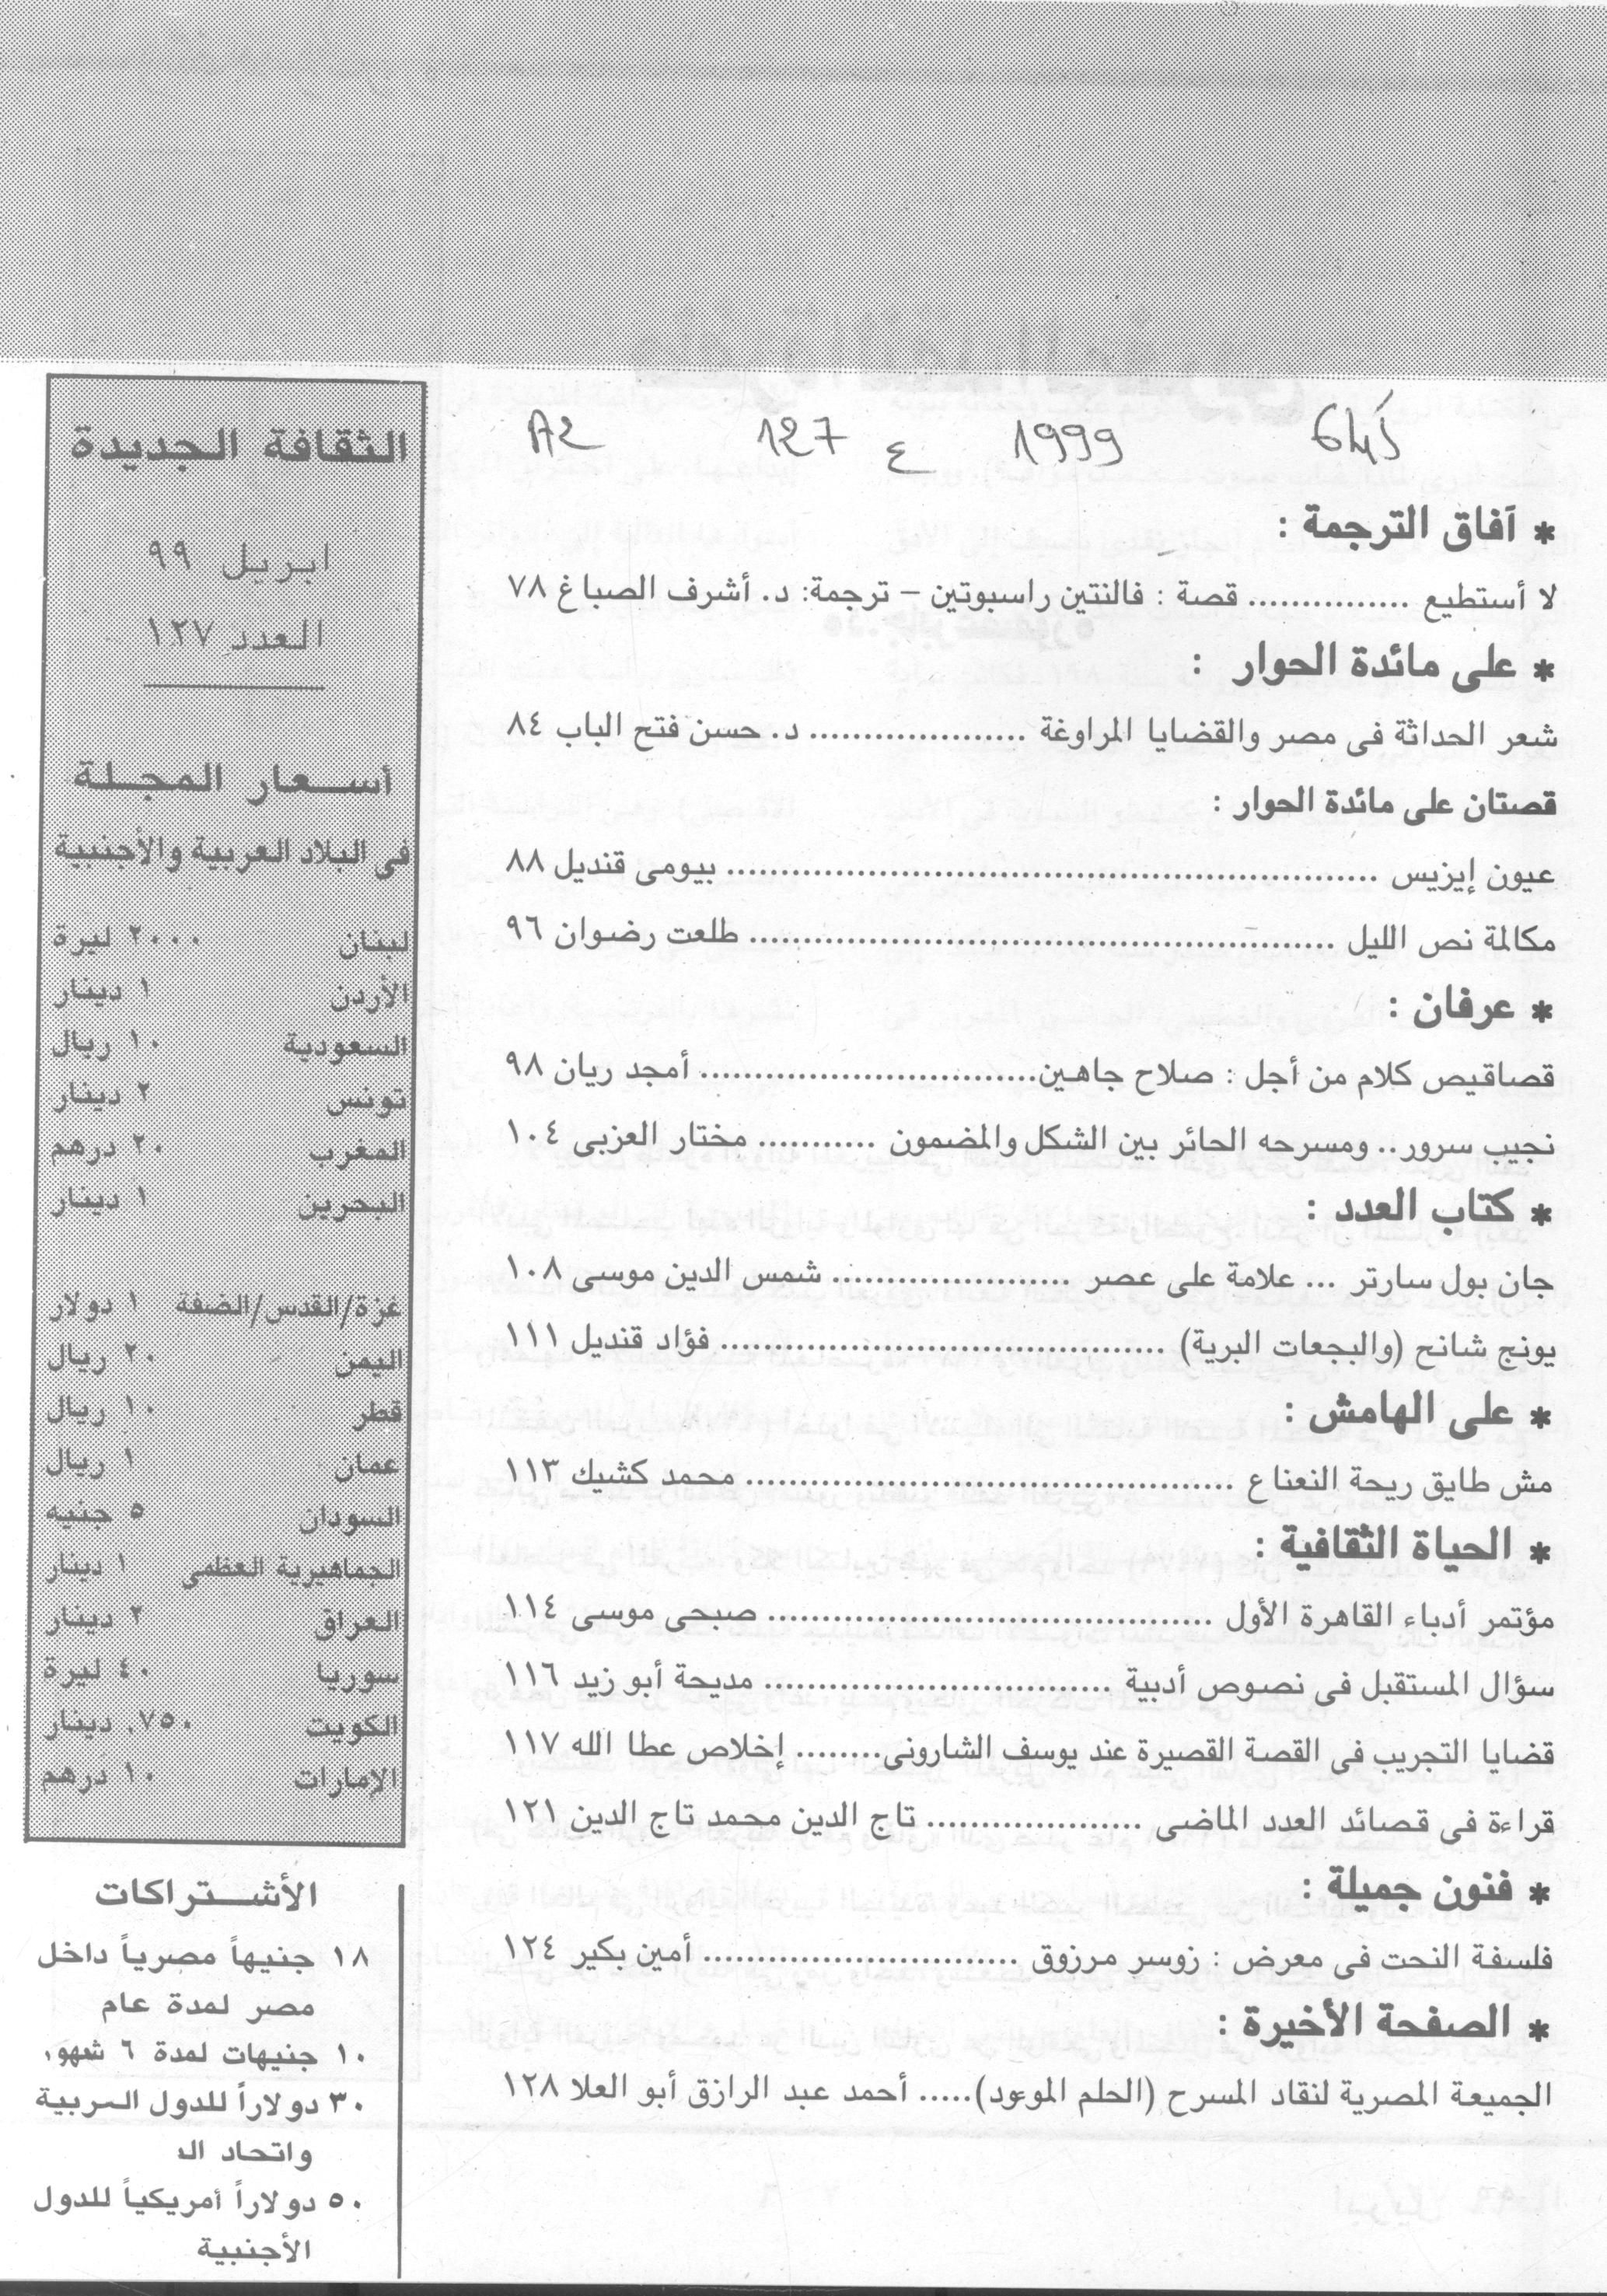 1999 ع 127 A2
* آفاق الترجمة :
لا أستطيع ............... قصة : فالنتين راسبوتين – ترجمة: د. أشرف الصباغ ٧٨
* على مائدة الحوار :
شعر الحداثة فى مصر والقضايا المراوغة .................... د. حسن فتح الباب ٨٤
قصتان على مائدة الحوار :
عيون إيزيس ............................................................ بيومى قنديل ٨٨
مكالمة نص الليل ...................................................... طلعت رضوان ٩٦
* عرفان :
قصاقيص كلام من أجل : صلاح جاهين............................... أمجد ريان ٩٨
نجيب سرور.. ومسرحه الحائر بين الشكل والمضمون ........... مختار العزبى ١٠٤
* كتاب العدد :
جان بول سارتر ... علامة على عصر ...................... شمس الدين موسى ١٠٨
يونج شانح (والبجعات البرية) ......................................... فؤاد قنديل ١١١
* على الهامش :
مش طايق ريحة النعناع ............................................. محمد كشيك ١١٣
* الحياة الثقافية :
مؤتمر أدباء القاهرة الأول ......................................... صبحى موسى ١١٤
سؤال المستقبل فى نصوص أدبية ................................ مديحة أبو زيد ١١٦
قضايا التجريب فى القصة القصيرة عند يوسف الشارونى........ إخلاص عطا الله ١١٧
قراءة فى قصائد العدد الماضى .................... تاج الدين محمد تاج الدين ١٢١
* فنون جميلة :
فلسفة النحت فى معرض : زوسر مرزوق ............................. أمين بكير ١٢٤
* الصفحة الأخيرة :
الجميعة المصرية لنقاد المسرح (الحلم الموعود)..... أحمد عبد الرازق أبو العلا ١٢٨
الثقافة الجديدة
ابريل ٩٩
العدد ١٢٧
أسـعار المجـلـة
فى البلاد العربية والأجنبية
لبنان ٢٠٠٠ ليرة
الأردن ١ دينار
السعودية ١٠ ريال
تونس ٢ دينار
المغرب ٢٠ درهم
البحرين ١ دينار
غزة/القدس/الضفة ١ دولار
اليمن ٢٠ ريال
قطر ١٠ ريال
عمان ١ ريال
السودان ٥ جنيه
الجماهيرية العظمى ١ دينار
العراق ٢ دينار
سوريا ٤٠ ليرة
الكويت ٧٥٠, دينار
الإمارات ١٠ درهم
الأشـتراكات
١٨ جنيهاً مصرياً داخل
مصر لمدة عام
١٠ جنيهات لمدة ٦ شهور
٣٠ دولاراً للدول العربية
واتحاد
٥٠ دولاراً أمريكياً للدول
الأجنبية